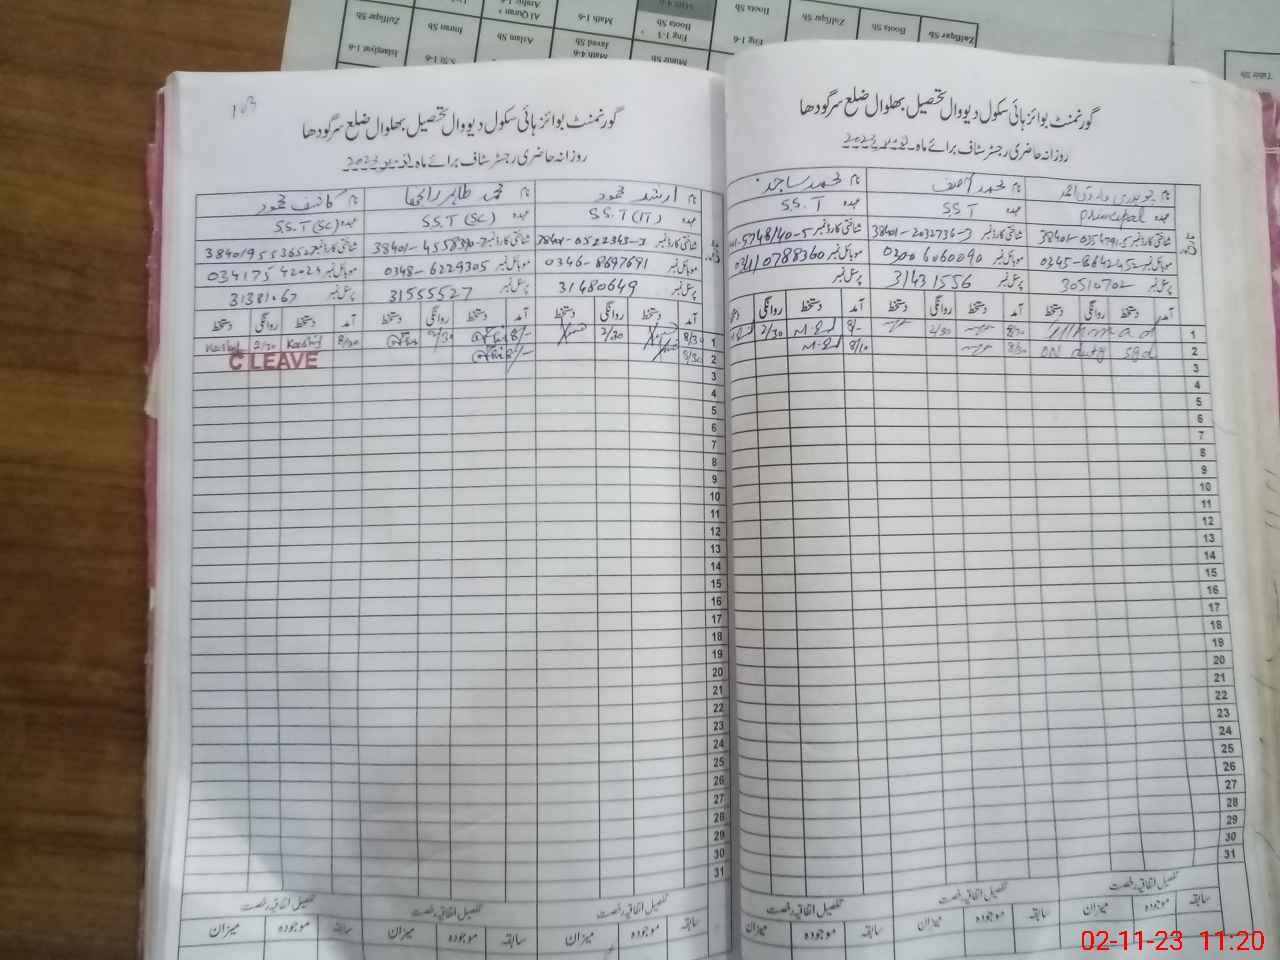 گورنمنٹ بوائز ہائی سکول دیووال تحصیل بھلوال ضلع سرگودھا
روزانہ حاضری رجسٹر سٹاف برائے ماہ نومبر 2023
نام
عہدہ Principal
شناختی کارڈ نمبر
موبائل نمبر 0345-8642452
پرسنل نمبر 30510702
نام محمد آصف
عہدہ S.S.T
شناختی کارڈ نمبر 38401-2032736-3
موبائل نمبر 0300 6060090
پرسنل نمبر 31431556
نام محمد ساجد
عہدہ S.S.T
شناختی کارڈ نمبر 5748140-5
موبائل نمبر 0788360
پرسنل نمبر
آمد دستخط روانگی دستخط آمد دستخط روانگی دستخط آمد دستخط روانگی
1 8/30 2/30 8/- 2/30
2 ON duty 8/30 8/10
3
4
5
6
7
8
9
10
11
12
13
14
15
16
17
18
19
20
21
22
23
24
25
26
27
28
29
30
31
تفصیل اتفاقیہ رخصت تفصیل اتفاقیہ رخصت تفصیل اتفاقیہ رخصت
سابقہ موجودہ میزان سابقہ موجودہ میزان سابقہ موجودہ میزان
103
گورنمنٹ بوائز ہائی سکول دیووال تحصیل بھلوال ضلع سرگودھا
روزانہ حاضری رجسٹر سٹاف برائے ماہ نومبر 2023
نام ارشد محمود
عہدہ S.S.T (IT)
شناختی کارڈ نمبر 38401-0522343-3
موبائل نمبر 0346-8697691
پرسنل نمبر 31480649
نام محمد طاہر رانجھا
عہدہ S.S.T (SC)
شناختی کارڈ نمبر 38401-4558390-7
موبائل نمبر 0348-6229305
پرسنل نمبر 31555527
نام کاشف محمود
عہدہ S.S.T (SC)
شناختی کارڈ نمبر
موبائل نمبر 034175 42024
پرسنل نمبر 31381067
آمد دستخط روانگی دستخط آمد دستخط روانگی دستخط آمد دستخط روانگی دستخط
1 8/30 2/30 8/- 2/30 8/30 Kashif 2/30 Kashif
2 8/30 8/- C LEAVE
3
4
5
6
7
8
9
10
11
12
13
14
15
16
17
18
19
20
21
22
23
24
25
26
27
28
29
30
31
تفصیل اتفاقیہ رخصت تفصیل اتفاقیہ رخصت تفصیل اتفاقیہ رخصت
سابقہ موجودہ میزان سابقہ موجودہ میزان سابقہ موجودہ میزان
Zulfiqar Sb
Islamiyat 1-6
Imran Sb
Aslam Sb
Al Quran
Math 1-6
Javed Sb
Math 4-6
Boota Sb
Eng 1-3
Munir Sb
Boota Sb
Eng 1-6
Zulfiqar Sb
Boota Sb
Zulfiqar Sb
Tahir Sb
02-11-23 11:20